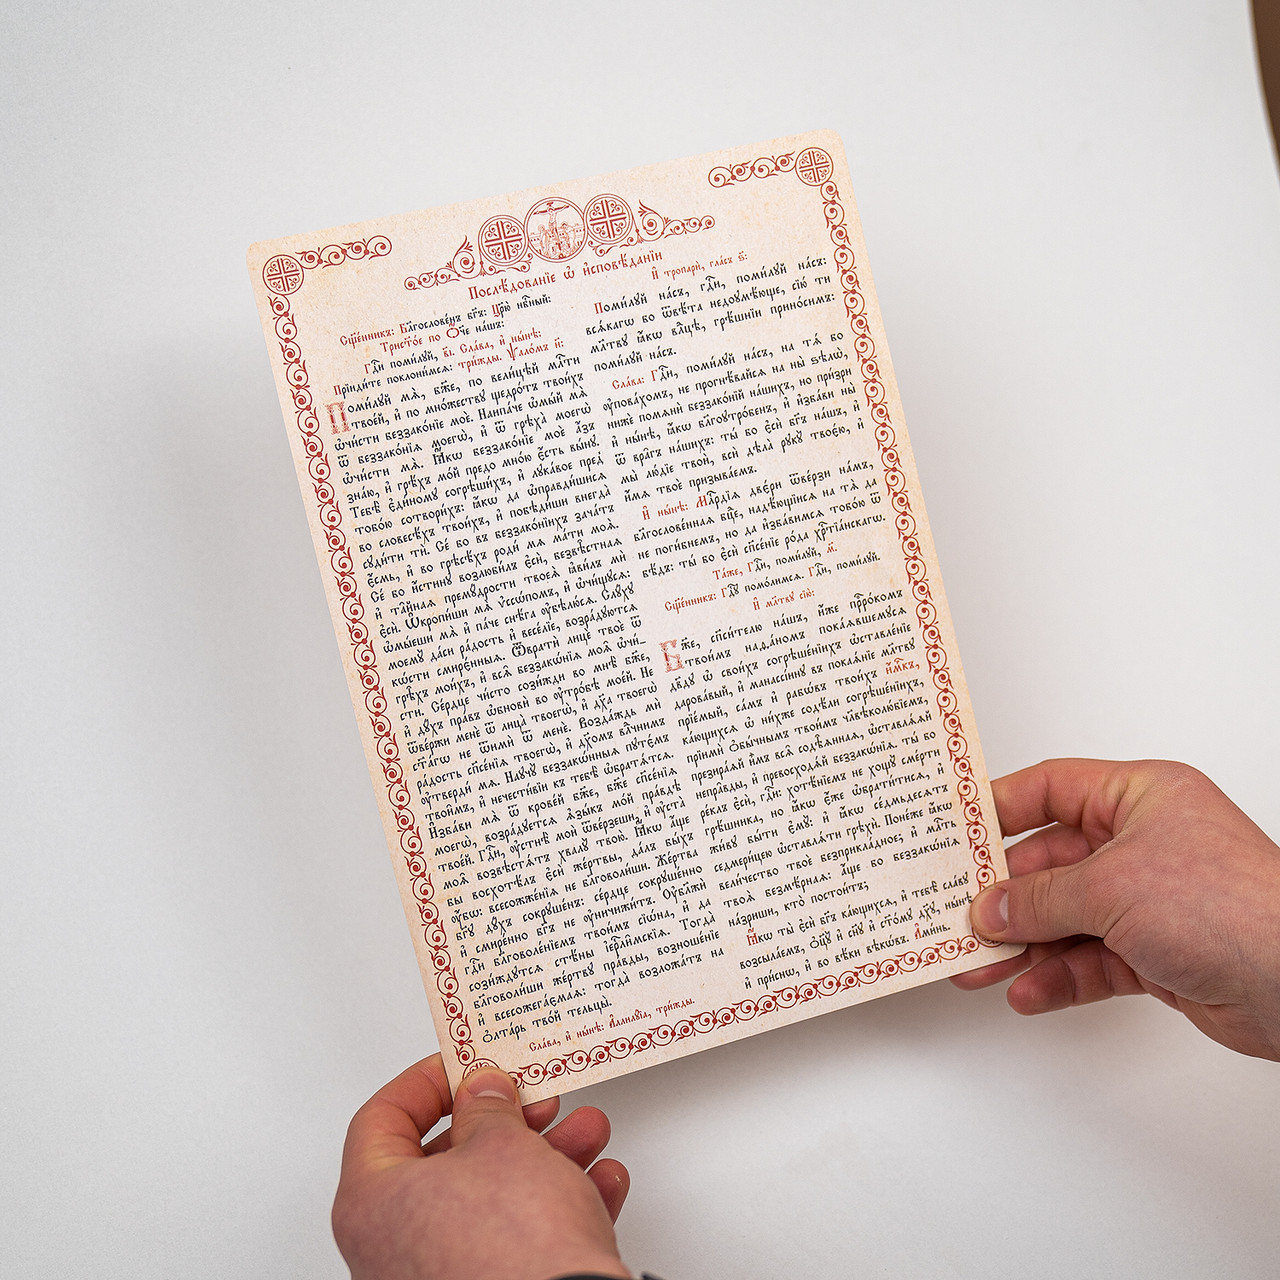 Послѣ́дованїе ѡ҆ и҆сповѣ́данїи
Сщ҃е́нникъ: Бл҃гослове́нъ бг҃ъ: Цр҃ю̀ нбⷭ҇ный:
Трист҃о́е по Ѻ҆́ч҃е на́шъ:
Гдⷭ҇и поми́лꙋй, в҃і. Сла́ва, и҆ ны́нѣ:
Прїиди́те поклони́мсѧ: три́жды. Ѱало́мъ н҃:
Поми́лꙋй мѧ̀, бж҃е, по вели́цѣй млⷭ҇ти
твое́й, и҆ по мно́жествꙋ щедро́тъ твои́хъ
ѡ҆чи́сти беззако́нїе моѐ. Наипа́че ѡ҆мы́й мѧ̀
ѿ беззако́нїѧ моегѡ̀, и҆ ѿ грѣха̀ моегѡ̀
ѡ҆чи́сти мѧ̀. Ꙗ҆́кѡ беззако́нїе моѐ а҆́зъ
зна́ю, и҆ грѣ́хъ мо́й предо мно́ю є҆́сть вы́нꙋ.
Тебѣ̀ є҆ди́номꙋ согрѣши́хъ, и҆ лꙋка́вое пред̾
тобо́ю сотвори́хъ: ꙗ҆́кѡ да ѡ҆правди́шисѧ
во словесѣ́хъ твои́хъ, и҆ побѣди́ши внегда̀
сꙋди́ти тѝ. Се́ бо въ беззако́нїихъ зача́тъ
є҆́смь, и҆ во грѣсѣ́хъ родѝ мѧ̀ ма́ти моѧ̀.
Се́ бо и҆́стинꙋ возлюби́лъ є҆сѝ, безвѣ̑стнаѧ
и҆ та̑йнаѧ премꙋ́дрости твоеѧ̀ ꙗ҆ви́лъ мѝ
є҆сѝ. Ѡ҆кропи́ши мѧ̀ ѵ҆ссѡ́помъ, и҆ ѡ҆чи́щꙋсѧ:
ѡ҆мы́еши мѧ̀ и҆ па́че снѣ́га ᲂу҆бѣлю́сѧ. Слꙋ́хꙋ
моемꙋ̀ да́си ра́дость и҆ весе́лїе, возра́дꙋютсѧ
кѡ́сти смирє́нныѧ. Ѿвратѝ лицѐ твоѐ ѿ
грѣ̑хъ мои́хъ, и҆ всѧ̑ беззакѡ́нїѧ моѧ̑ ѡ҆чи́-
сти. Се́рдце чи́сто сози́жди во мнѣ̀ бж҃е,
и҆ дꙋ́хъ пра́въ ѡ҆бновѝ во ᲂу҆тро́бѣ мое́й. Не
ѿве́ржи менѐ ѿ лица̀ твоегѡ̀, и҆ дх҃а твоегѡ̀
ст҃а́гѡ не ѿимѝ ѿ менѐ. Возда́ждь мѝ
ра́дость сп҃се́нїѧ твоегѡ̀, и҆ дх҃омъ влⷣчнимъ
ᲂу҆твердѝ мѧ̀. Наꙋчꙋ̀ беззакѡ́нныѧ пꙋте́мъ
твои̑мъ, и҆ нечести́вїи къ тебѣ̀ ѡ҆братѧ́тсѧ.
И҆зба́ви мѧ̀ ѿ крове́й бж҃е, бж҃е сп҃се́нїѧ
моегѡ̀, возра́дꙋетсѧ ѧ҆зы́къ мо́й пра́вдѣ
твое́й. Гдⷭ҇и, ᲂу҆стнѣ̀ моѝ ѿве́рзеши, и҆ ᲂу҆ста̀
моѧ̑ возвѣстѧ́тъ хвалꙋ̀ твою̀. Ꙗ҆́кѡ а҆́ще
бы восхотѣ́лъ є҆сѝ же́ртвы, да́лъ бы́хъ
ᲂу҆́бѡ: всесожже́нїѧ не бл҃говоли́ши. Же́ртва
бг҃ꙋ дꙋ́хъ сокрꙋше́нъ: се́рдце сокрꙋше́нно
и҆ смире́нно бг҃ъ не ᲂу҆ничижи́тъ. Оу҆бл҃жѝ
гдⷭ҇и бл҃говоле́нїемъ твои́мъ сїѡ́на, и҆ да
сози́ждꙋтсѧ стѣ́ны і҆ерⷭ҇ли̑мскїѧ. Тогда̀
бл҃говоли́ши же́ртвꙋ пра́вды, возноше́нїе
и҆ всесожега́ємаѧ: тогда̀ возложа́тъ на
ѻ҆лта́рь тво́й тельцы̀.
Сла́ва, и҆ ны́нѣ: А҆ллилꙋ́їа, три́жды.
И҆ тропарѝ, гла́съ ѕ҃:
Поми́лꙋй на́съ, гдⷭ҇и, поми́лꙋй на́съ:
всѧ́кагѡ бо ѿвѣ́та недоꙋмѣ́юще, сїю̀ ти
мл҃твꙋ ꙗ҆́кѡ влⷣцѣ, грѣ́шнїи прино́симъ:
поми́лꙋй на́съ.
Сла́ва: Гдⷭ҇и, поми́лꙋй на́съ, на тѧ́ бо
ᲂу҆пова́хомъ, не прогнѣ́вайсѧ на ны̀ ѕѣлѡ̀,
нижѐ помѧнѝ беззако́нїй на́шихъ, но при́зри
и҆ ны́нѣ, ꙗ҆́кѡ бл҃гоꙋтро́бенъ, и҆ и҆зба́ви ны̀
ѿ вра̑гъ на́шихъ: ты́ бо є҆сѝ бг҃ъ на́шъ, и҆
мы̀ лю́дїе твоѝ, всѝ дѣла̀ рꙋкꙋ̀ твоє́ю, и҆
и҆́мѧ твоѐ призыва́емъ.
И҆ ны́нѣ: Млⷭ҇рдїѧ двє́ри ѿве́рзи на́мъ,
бл҃гослове́ннаѧ бцⷣе, надѣ́ющїисѧ на тѧ̀ да
не поги́бнемъ, но да и҆зба́вимсѧ тобо́ю ѿ
бѣ́дъ: ты́ бо є҆сѝ сп҃се́нїе ро́да хрⷭ҇тїа́нскагѡ.
Та́же, Гдⷭ҇и, поми́лꙋй, м҃.
Сщ҃е́нникъ: Гдⷭ҇ꙋ помо́лимсѧ. Гдⷭ҇и, поми́лꙋй.
И҆ мл҃твꙋ сїю̀:
Бж҃е, сп҃си́телю на́шъ, и҆́же прⷪ҇ро́комъ
твои́мъ наѳа́номъ пока́ѧвшемꙋсѧ
дв҃дꙋ ѡ҆ свои́хъ согрѣше́нїихъ ѡ҆ставле́нїе
дарова́вый, и҆ манассі́инꙋ въ покаѧ́нїе мл҃твꙋ
прїе́мый, са́мъ и҆ рабѡ́въ твои́хъ и҆́м҃къ,
ка́ющихсѧ ѡ҆ ни́хже содѣ́ла согрѣше́нїихъ,
прїимѝ ѻ҆бы́чнымъ твои́мъ чл҃вѣколю́бїемъ,
презира́ѧй и҆̀мъ всѧ̑ содѣ́ѧннаѧ, ѡ҆ставлѧ́ѧй
непра̑вды, и҆ превосходѧ́й беззакѡ́нїѧ. ты́ бо
ре́клъ є҆сѝ, гдⷭ҇и: хотѣ́нїемъ не хощꙋ̀ сме́рти
грѣ́шника, но ꙗ҆́кѡ є҆́же ѡ҆брати́тисѧ, и҆
жи́вꙋ бы́ти є҆мꙋ̀: и҆ ꙗ҆́кѡ се́дмьдесѧтъ
седмери́цею ѡ҆ставлѧ́ти грѣхѝ. Поне́же ꙗ҆́кѡ
вели́чество твоѐ безприкла́дное, и҆ млⷭ҇ть
твоѧ̀ безмѣ́рнаѧ: а҆́ще бо беззакѡ́нїѧ
на́зриши, кто̀ постои́тъ;
Ꙗ҆́кѡ ты̀ є҆сѝ бг҃ъ ка́ющихсѧ, и҆ тебѣ̀ сла́вꙋ
возсыла́емъ, ѻ҆ц҃ꙋ̀ и҆ сн҃ꙋ и҆ ст҃о́мꙋ дх҃ꙋ, ны́нѣ
и҆ при́снѡ, и҆ во вѣ́ки вѣкѡ́въ. А҆ми́нь.